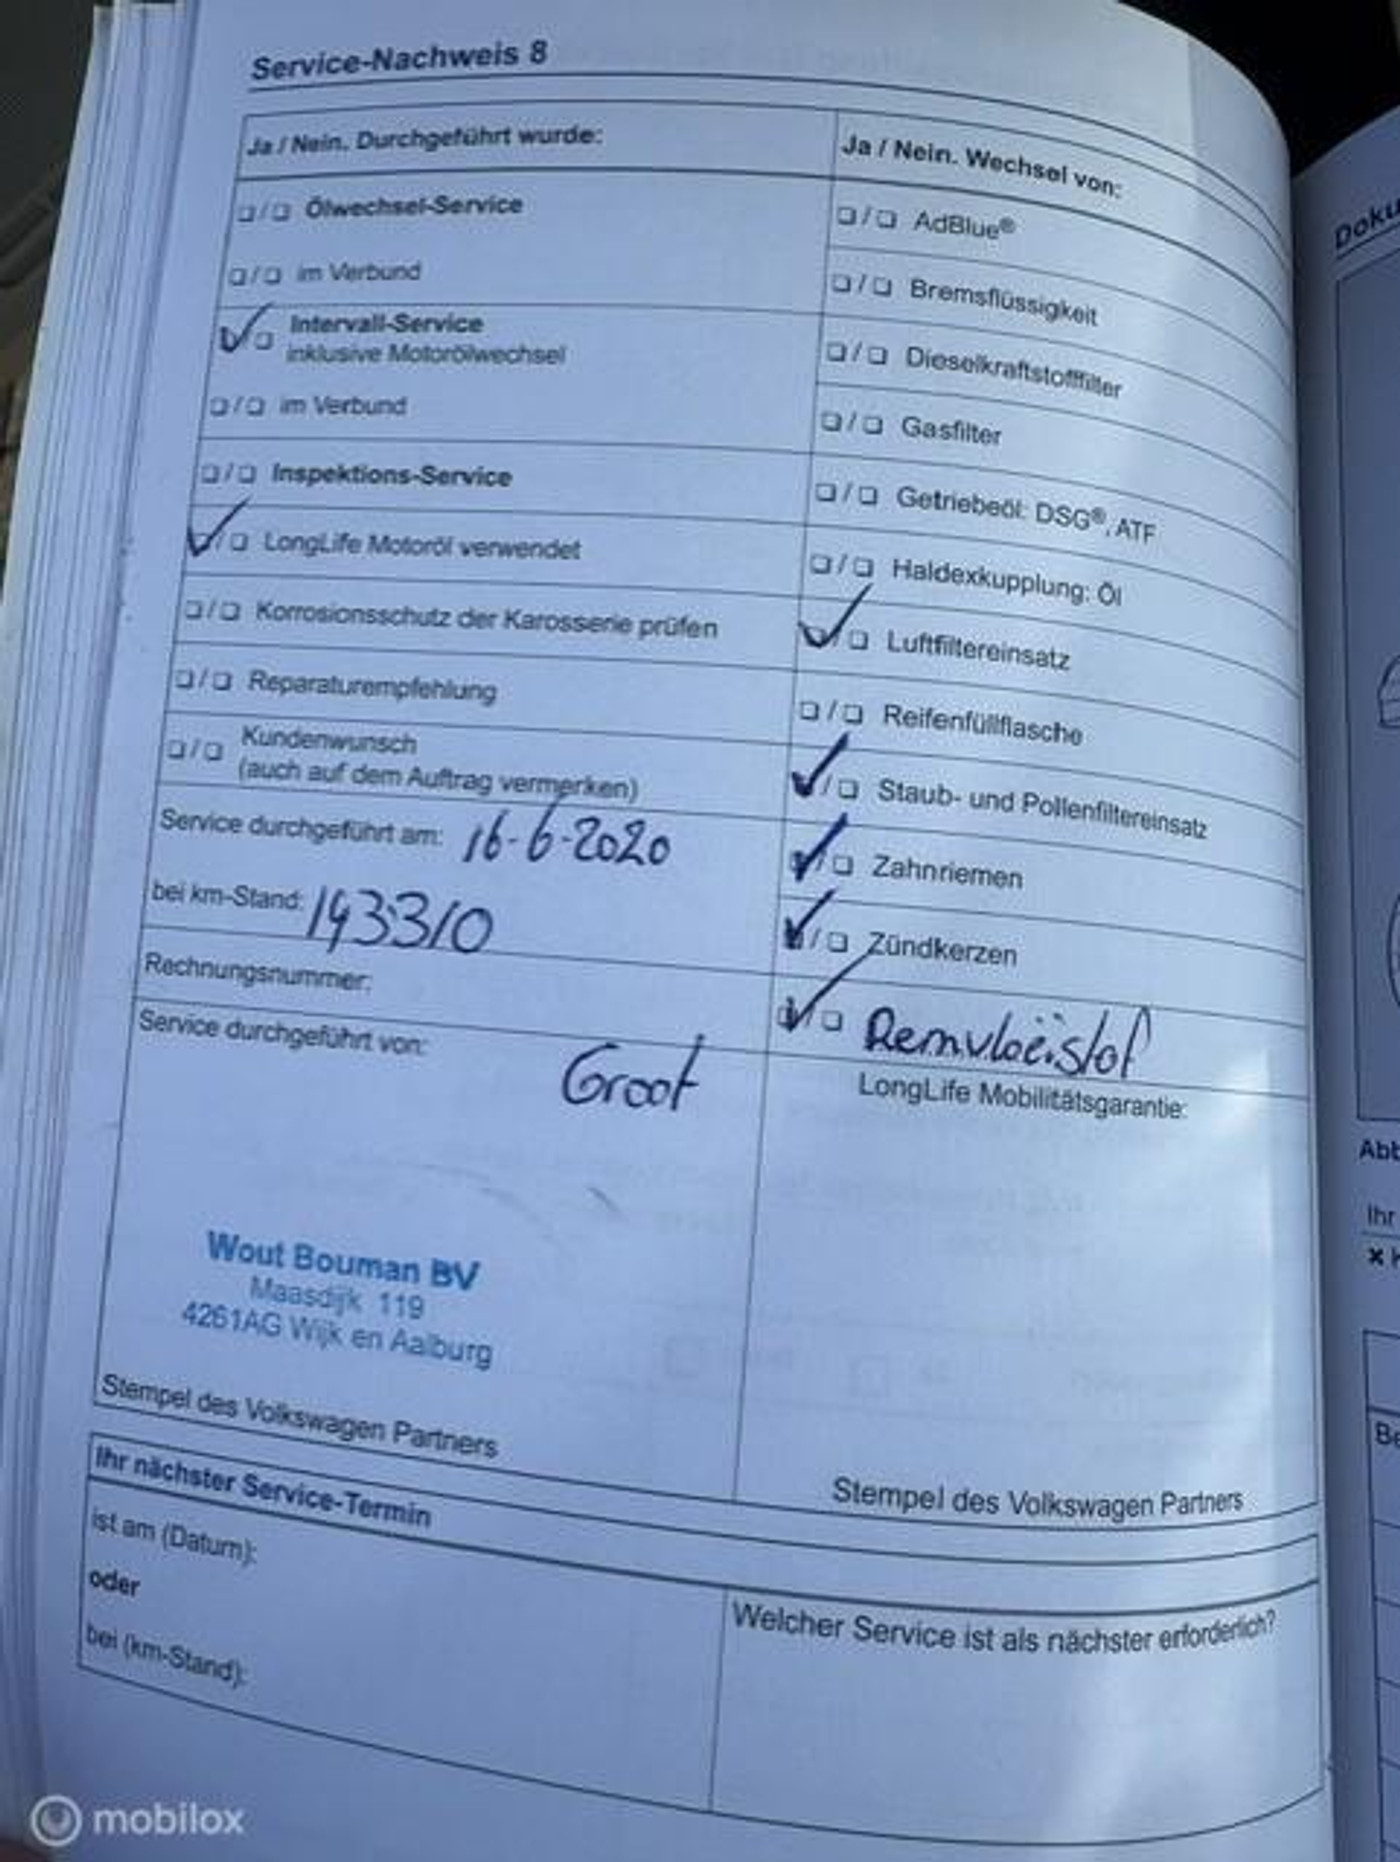 Service-Nachweis 8
Ja / Nein. Durchgeführt wurde:
❏/❏ Ölwechsel-Service
❏/❏ im Verbund
✓/❏ Intervall-Service
inklusive Motorölwechsel
❏/❏ im Verbund
❏/❏ Inspektions-Service
✓/❏ LongLife Motoröl verwendet
❏/❏ Korrosionsschutz der Karosserie prüfen
❏/❏ Reparaturempfehlung
❏/❏ Kundenwunsch
(auch auf dem Auftrag vermerken)
Service durchgeführt am: 16-6-2020
bei km-Stand: 193310
Rechnungsnummer:
Service durchgeführt von:
Groot
Wout Bouman BV
Maasdijk 119
4261AG Wijk en Aalburg
Stempel des Volkswagen Partners
Ja / Nein. Wechsel von:
❏/❏ AdBlue®
❏/❏ Bremsflüssigkeit
❏/❏ Dieselkraftstofffilter
❏/❏ Gasfilter
❏/❏ Getriebeöl: DSG®, ATF
❏/❏ Haldexkupplung: Öl
✓/❏ Luftfiltereinsatz
❏/❏ Reifenfüllflasche
✓/❏ Staub- und Pollenfiltereinsatz
✓/❏ Zahnriemen
✓/❏ Zündkerzen
✓/❏ Remvloeistof
LongLife Mobilitätsgarantie:
Stempel des Volkswagen Partners
Ihr nächster Service-Termin
ist am (Datum):
oder
bei (km-Stand):
Welcher Service ist als nächster erforderlich?
Doku
Abb
Ihr
Be
mobilox